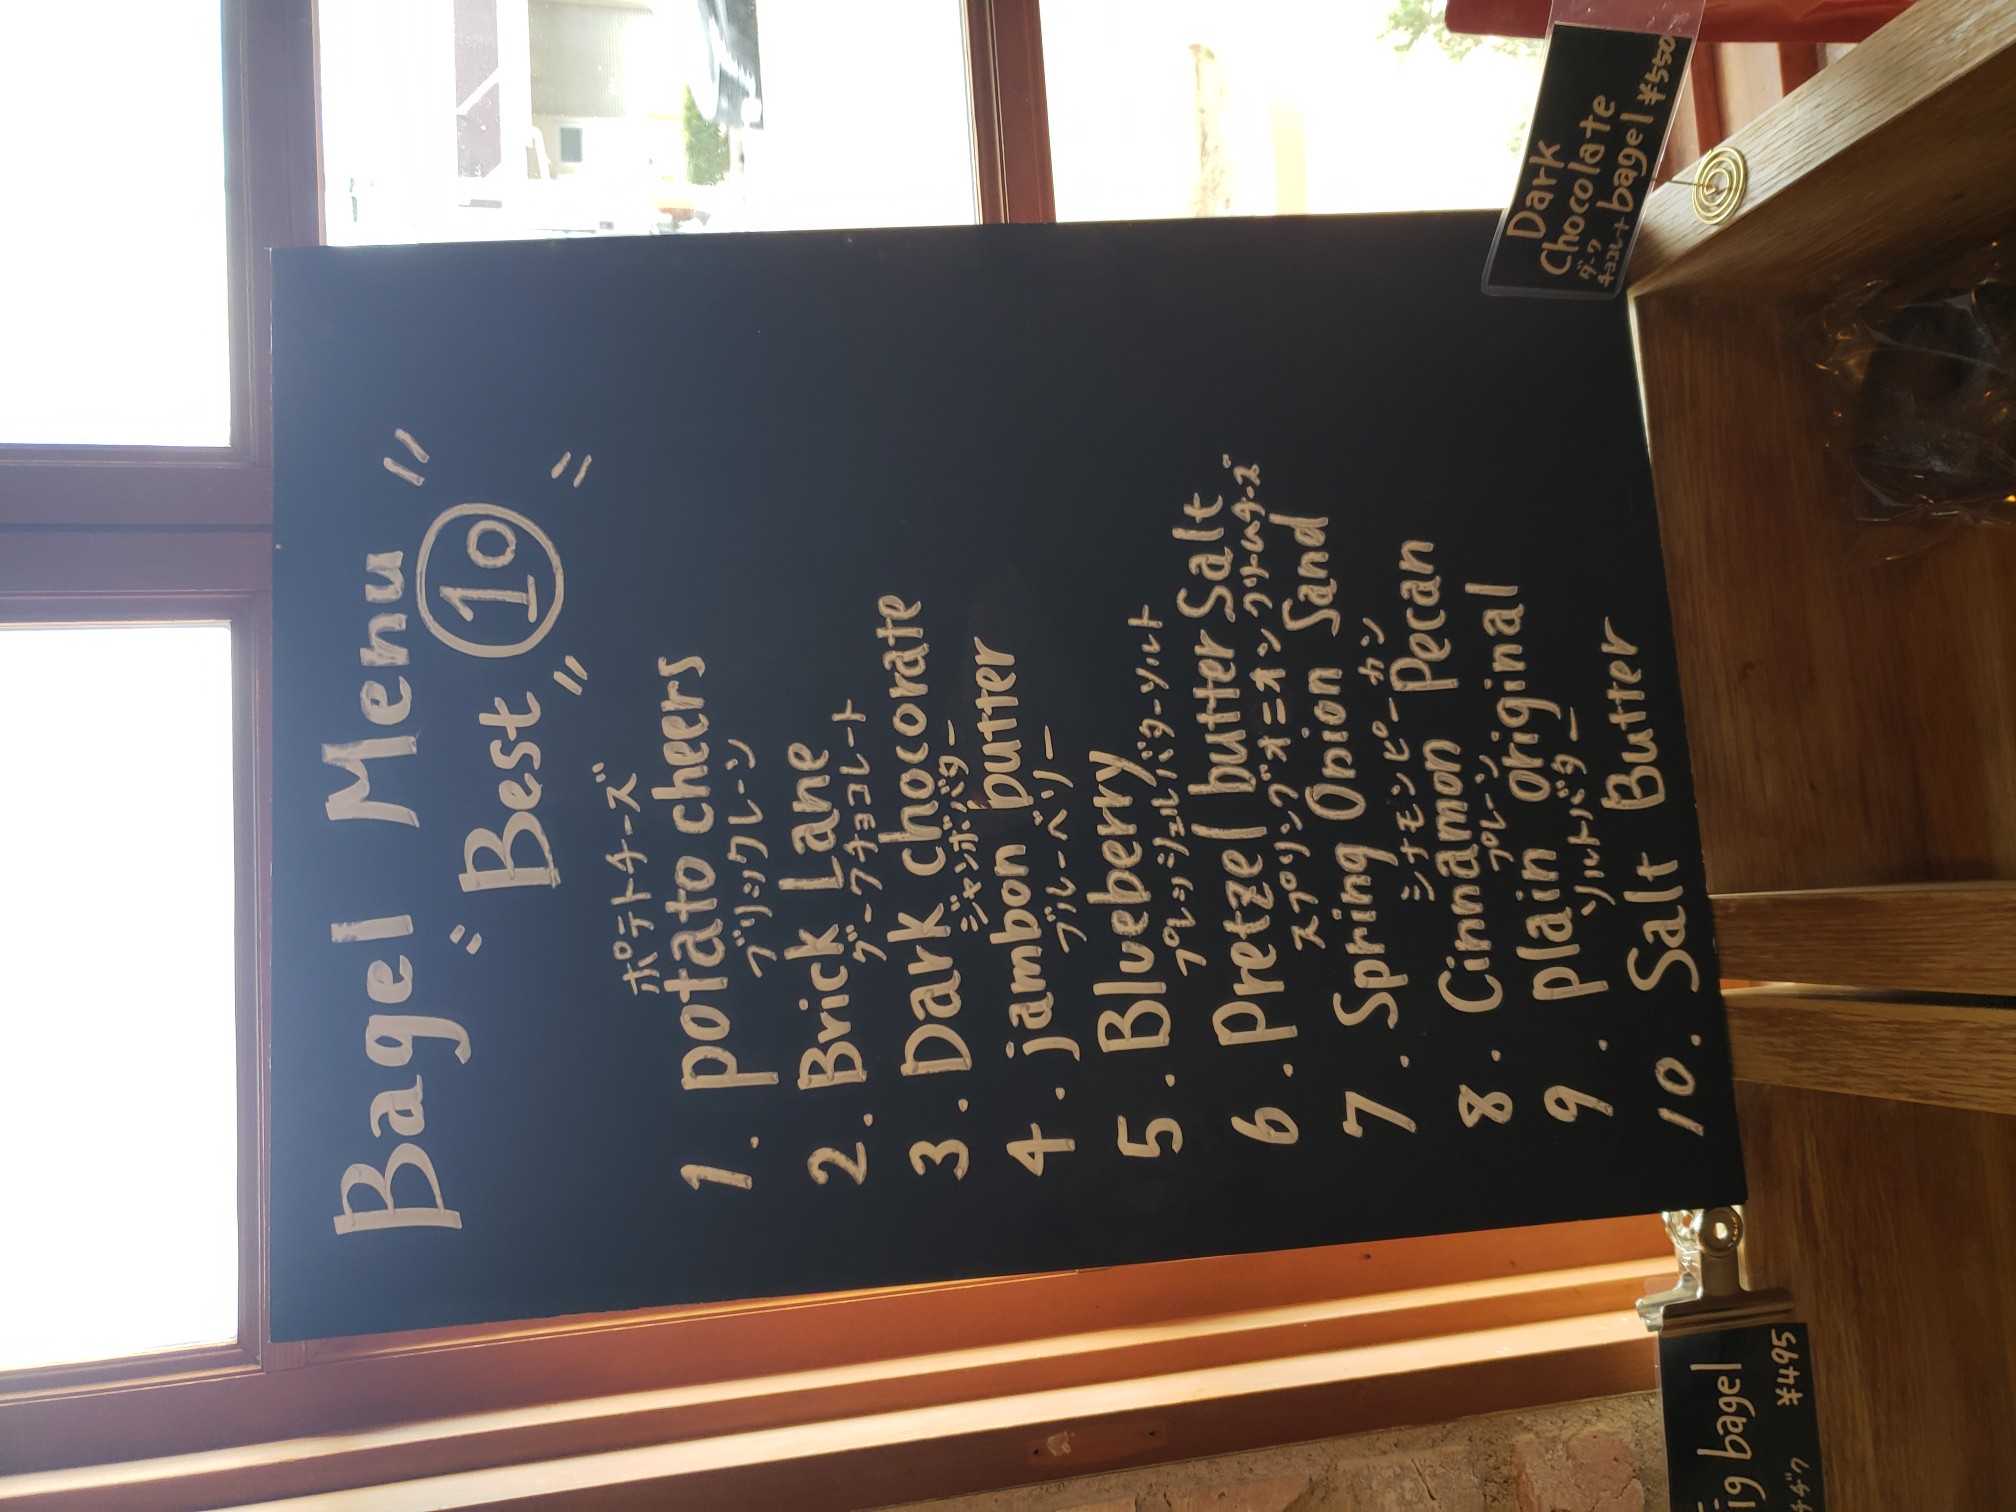 Bagel Menu
"Best ⑩"
ポテトチーズ
1. potato cheers
ブリックレーン
2. Brick Lane
ダークチョコレート
3. Dark chocorate
ジャンボンバター
4. jambon butter
ブルーベリー
5. Blueberry
プレッシェルバターソルト
6. Pretzel butter Salt
スプリングオニオン クリームチーズ
7. Spring Onion Sand
シナモンピーカン
8. Cinnamon Pecan
プレーン
9. plain original
ソルトバター
10. Salt Butter
Dark
Chocolate
ダーク
チョコレート bagel ¥550
ig bagel
¥495